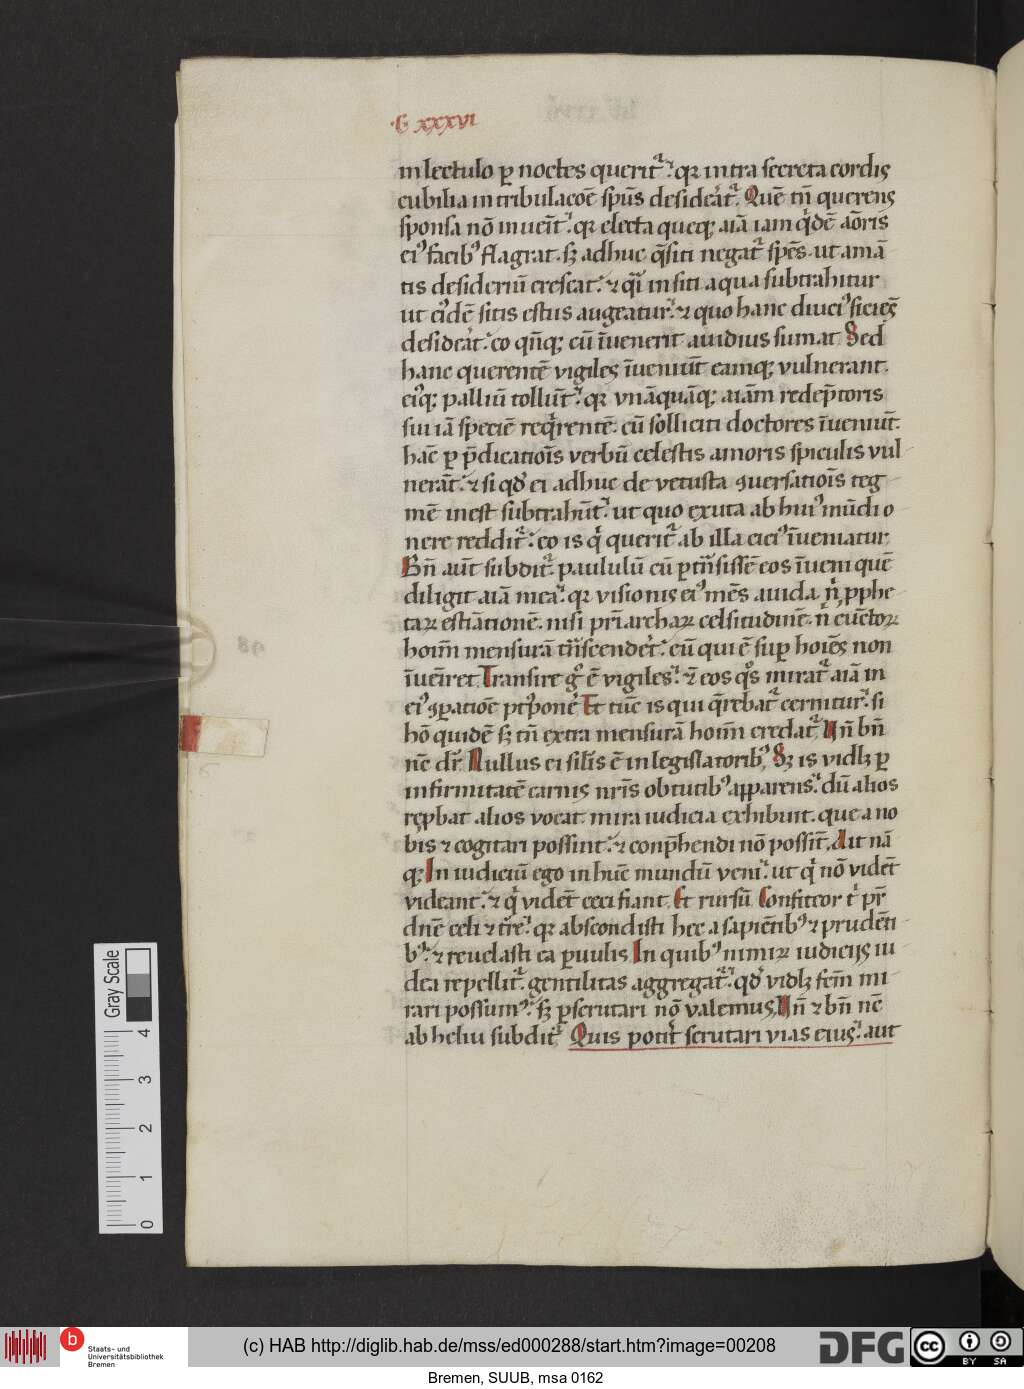 ·C· xxxvi
in lectulo ꝑ noctes querit᷑. qꝛ intra secreta cordis
cubilia in tribulacoē spūs desiderat᷑. Quē tn̄ querens
sponsa nō inueīt. qꝛ electa queqꝫ aīā iam qͥdē aōris
eiꝰ facibꝰ flagrat. sꝫ adhuc q̄siti negat᷑ spēs. ut amā
tis desideriū crescat. ⁊ qͣi in siti aqua subtrahitur
ut eiꝰdē sitis estus augeatur. ⁊ quo hanc diuciꝰ siciēs
desiderat. eo qn̄qꝫ cū īuenerit auidius sumat Sed
hanc querentē vigiles īueniūt eamqꝫ vulnerant.
eiꝰqꝫ palliū tollūt. qꝛ vnāquāqꝫ aīam redēptoris
sui iā speciē reqͥrentē. cū solliciti doctores īueniūt.
hāc ꝑ p̄dicatiōis verbū celestis amoris spiculis vul
nerāt. ⁊ si qd̕ ei adhuc de vetusta ꝯuersatiōis teg
mē inest subtrahūt. ut quo exuta ab huiꝰ mūdi o
nere reddit᷑. eo is qͥ querit᷑ ab illa ciciꝰ īueniatur
Bn̄ aūt subdit᷑. paululū cū ꝑtn̄sissē eos īueni quē
diligit aīā mea. qꝛ visionis eiꝰ mēs auida. nͥ ꝓphe
taꝝ estīatione. nisi pr̄iarchaꝝ celsitudinē. nͥ cūctoꝝ
hoīm mensurā tn̄scenderͥt. eū qui ē suꝑ hoīes non
īueīret. Transire gͦ ē vigiles. ⁊ eos qͦs mirat᷑ aīā in
eiꝰ ꝯꝑatiōe ptꝑonē Et tūc is qui q̄rebat᷑ cernitur. si
hō quidē sꝫ tn̄ extra mensurā hoīm credat᷑ Vn̄ bn̄
nc̄ dr̄ Nullus ei sil̕is ē in legislatoribꝰ Sꝫ is vidlꝫ ꝑ
infirmitatē carnis nr̄is obtutibꝰ apparens. dū alios
rep̱bat alios vocat mira iudicia exhibuit. que a no
bis ⁊ cogitari possint. ⁊ conp̄hendi nō possīt. Ait nā
qꝫ In iudiciū ego in hūc mundū veni. ut qͥ nō vidēt
videant. ⁊ qͥ vidēt ceci fiant. Et rursū Confiteor tͥ pr̄
dn̄e celi ⁊ tr̄e. qꝛ abscondisti hec a sapiētibꝰ ⁊ prudēti
bꝰ. ⁊ reuelasti ea ꝑuulis In quibꝰ nimiꝝ iudicijs iu
dea repellit᷑. gentilitas aggregat᷑. qd̕ vidlꝫ fc̄m mi
rari possumꝰ. sꝫ ꝑscrutari nō valemus, Vn̄ ⁊ bn̄ nc̄
ab heliu subdit᷑ Quis potͥt scrutari vias eius. aut
Gray Scale
4
3
2
1
0
Staats- und
Universitätsbibliothek
Bremen
(c) HAB http://diglib.hab.de/mss/ed000288/start.htm?image=00208
DFG
cc BY SA
Bremen, SUUB, msa 0162